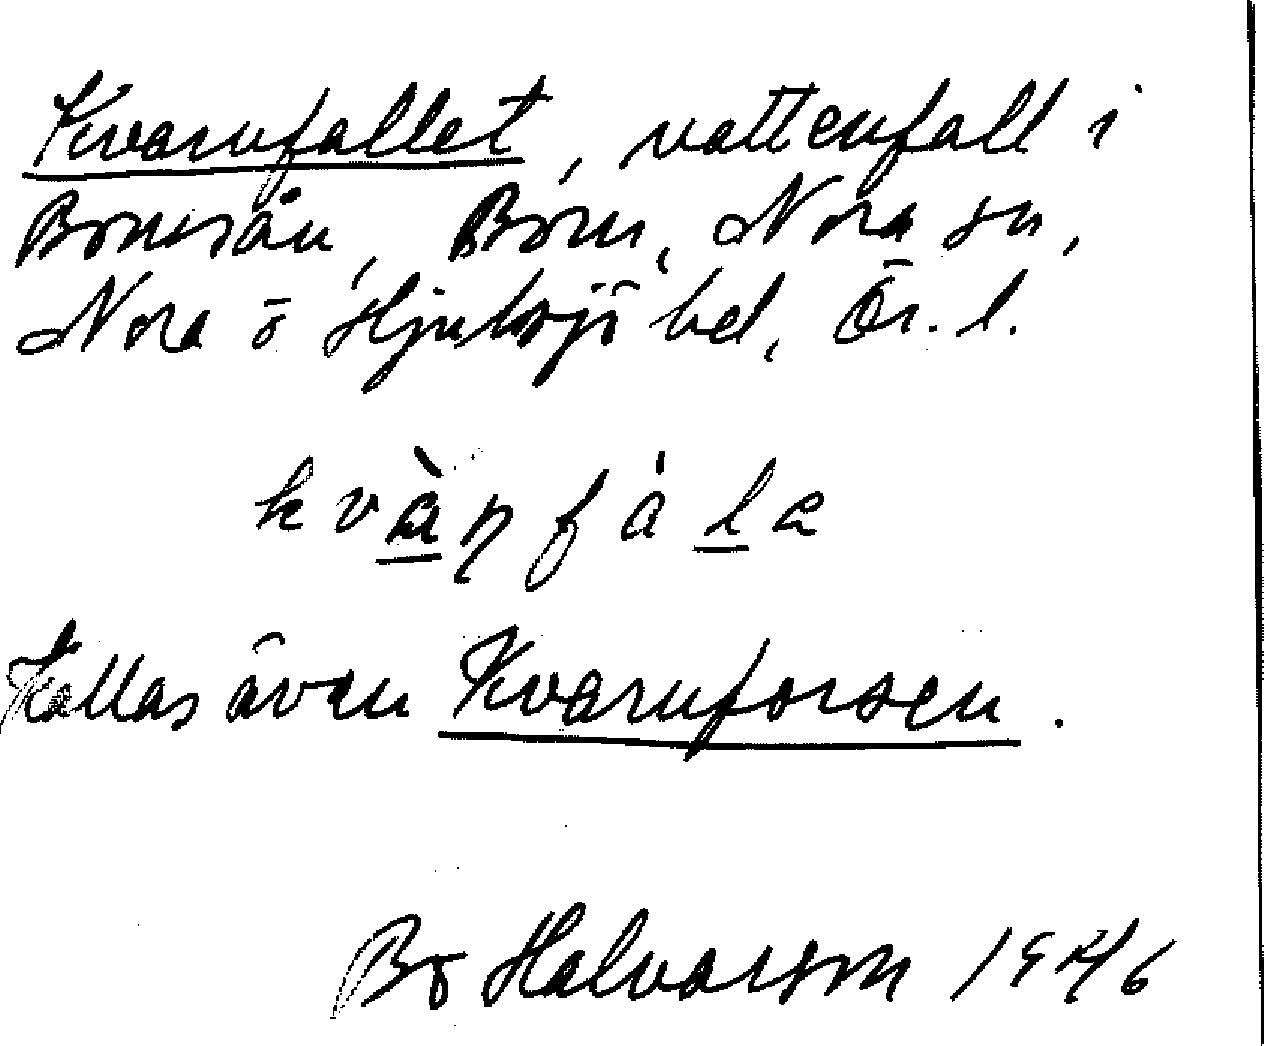 Kvarnfallet, vattenfall i
Bornsån, Born, Nora sn,
Nora o Hjulsjö bd, Ör. l.
kvàɳfálle
Kallas även Kvarnforsen.
Bo Halvarson 1946